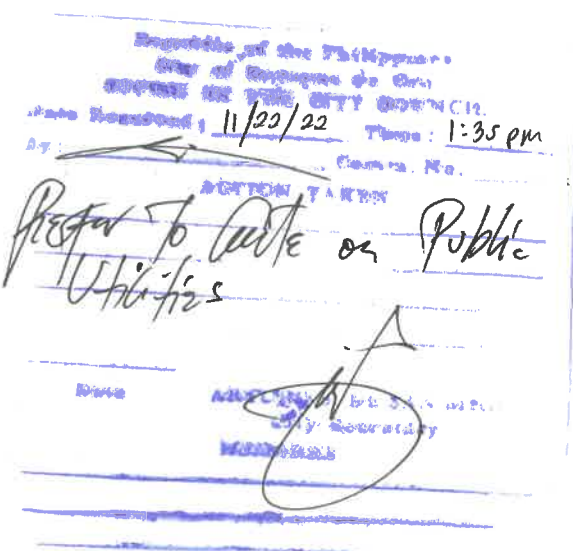 Republic of the Philippines
City of Cagayan de Oro
OFFICE OF THE CITY COUNCIL
Date Received: 11/22/22 Time: 1:35 pm
By: Comm. No.
ACTION TAKEN
Refer To Cmte on Public
Utilities
Date
City Secretary